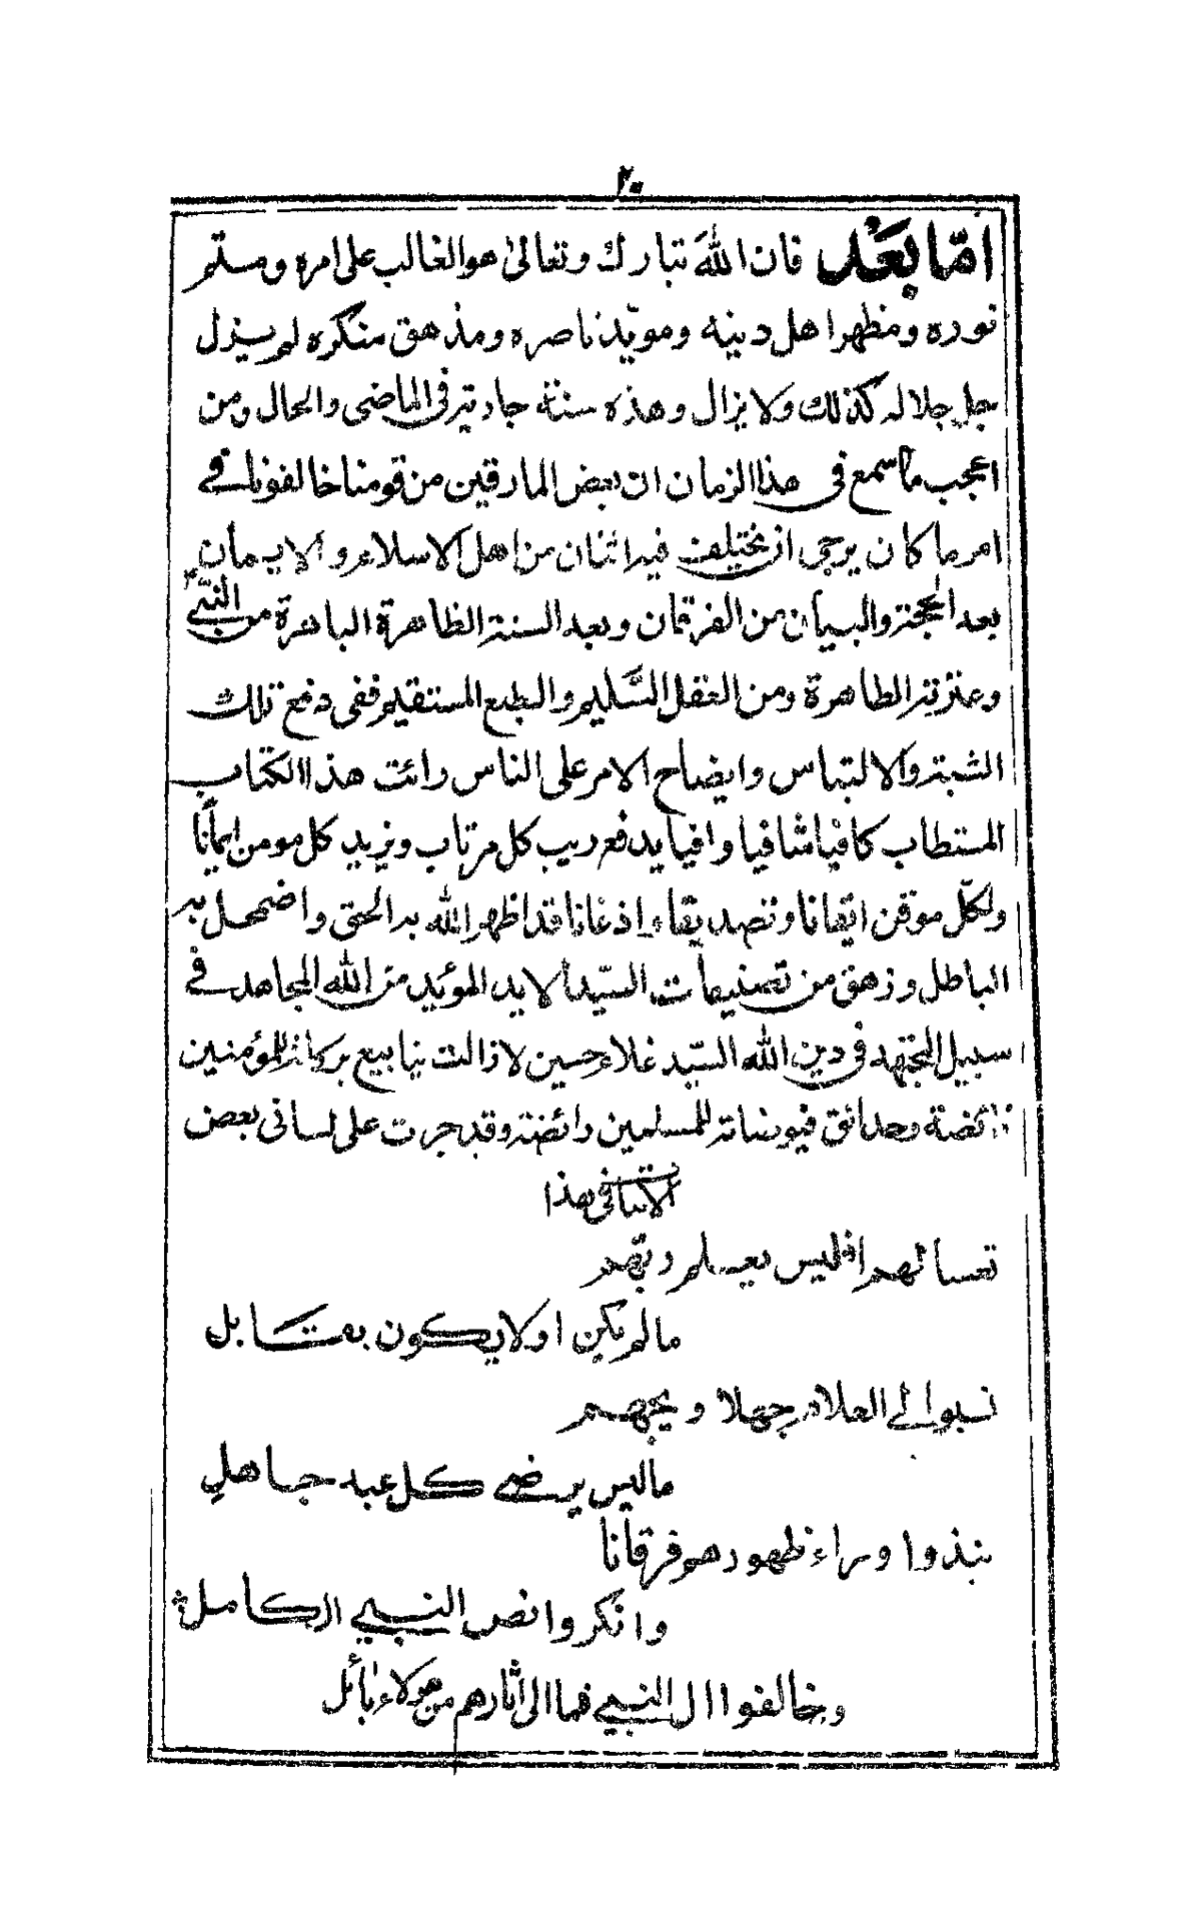 ٢٠
امّا بَعْد فان اللهَ تبارك وتعالىٰ هو الغالب على امره ومستم
نوره ومظهر اهل دينه ومويّد ناصره ومذهق منكره لم يزل
جل جلاله كذلك ولا يزال وهذه سنته جاريته فى الماضى والحال ومن
اعجب ما سمع فى هذا الزمان ان بعض المارقين من قومنا خالفونا فے
امر ما كان يرجى ان يختلف فيه اثنان من اهل الاسلام والايمان
بعد الحجته والبيان من الفرقان وبعد السنة الظاهرة الباهرة من النبّے
وعترته الطاهرة ومن العقل السَّليم والطبع المستقيم ففى دفع تلك
الشبته والالتباس وايضاح الامر على الناس رائت هذا الكتاب
المستطاب كافيا شافيا وافيا يدفع ريب كل مرتاب ويزيد كل مومن ايمانًا
ولكلّ موقن ايقانا وتصديقا واذعانا قد اظهر الله به الحق واضمحل به
الباطل وزهق من تصنيفات السيّد الايد المؤيد من الله المجاهد فے
سبيل المجتهد فى دين الله السيّد غلام حسين لا زالت ينابيع بركاته للمؤمنين
فائضة وحدائق فيوضاته للمسلمين رائضة وقد جرت على لسانى بعض
الابيات فى هذا
تعسا لهم افليس يعلم ربهم
ما لم يكن او لا يكون بقابل
نسبوا الى العلام جهلا ويحهم
ما ليس يرضے كل عبد جاهل
نبذوا وراء ظهورهم فرقانا
وانكروا نص النبے الكامل
وخالفوا ال النبے فما الى اثارهم من هولاء بأئل